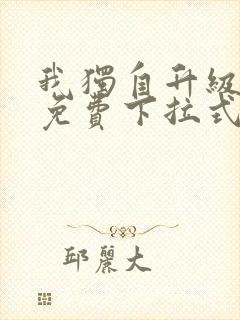 我獨自升級
免費下拉式
邱麗大